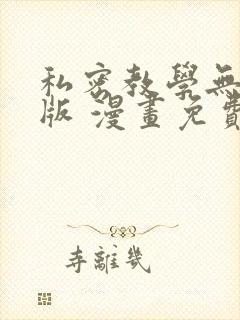 私密教學無
版 漫畫免費
寺離幾